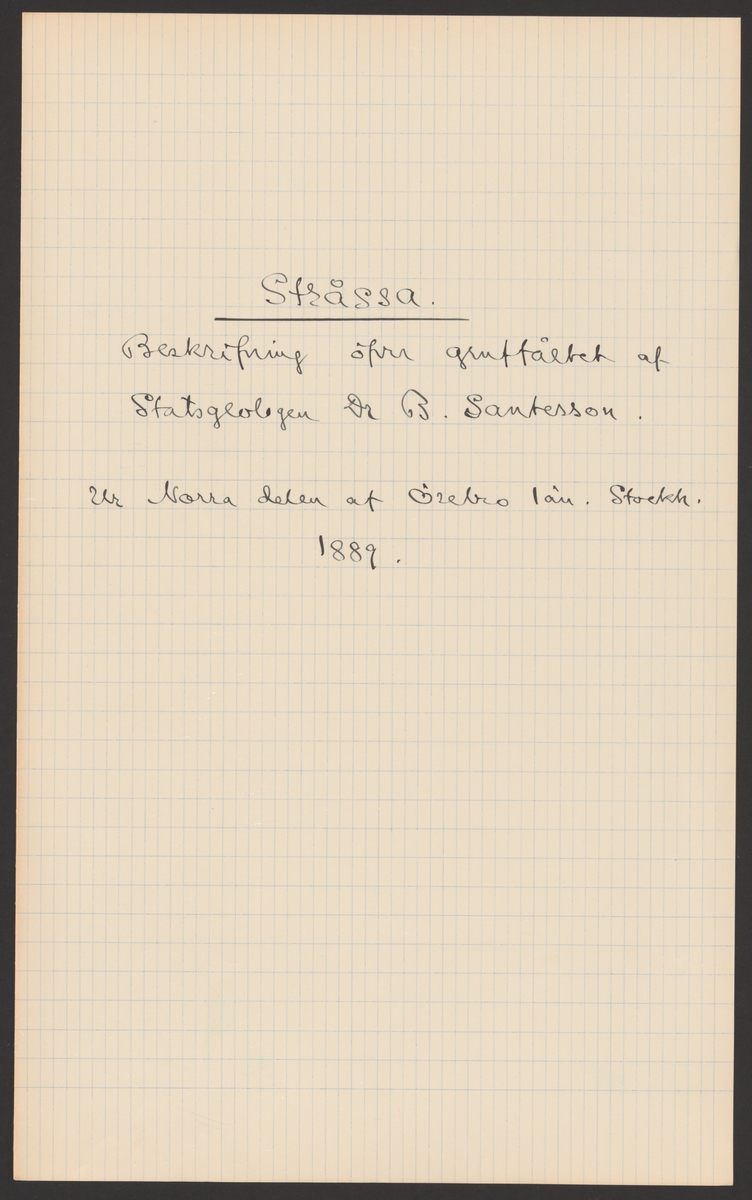 Stråssa.
Beskrifning öfver gruffältet af
Statsgeologen Dr B. Santesson.
Ur Norra delen af Örebro län. Stockh.
1889.